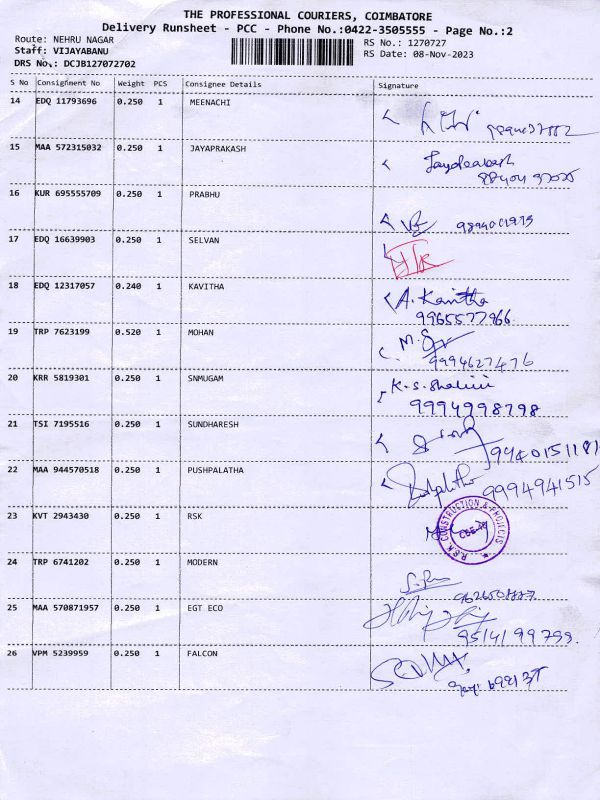 THE PROFESSIONAL COURIERS, COIMBATORE
Delivery Runsheet - PCC - Phone No.:0422-3505555 - Page No.:2
Route: NEHRU NAGAR
RS No.: 1270727
Staff: VIJAYABANU
RS Date: 08-Nov-2023
DRS No.: DCJB127072702
S No Consignment No Weight PCS Consignee Details Signature
14 EDQ 11793696 0.250 1 MEENACHI
15 MAA 572315032 0.250 1 JAYAPRAKASH
16 KUR 695555709 0.250 1 PRABHU
17 EDQ 16639903 0.250 1 SELVAN
18 EDQ 12317057 0.240 1 KAVITHA A. Kavitha
9965577966
19 TRP 7623199 0.520 1 MOHAN
9994627476
20 KRR 5819301 0.250 1 SNMUGAM K.S. Shalini
9994998798
21 TSI 7195516 0.250 1 SUNDHARESH
9940151181
22 MAA 944570518 0.250 1 PUSHPALATHA Pushpalatha
9994941515
23 KVT 2943430 0.250 1 RSK
R.S.K. CONSTRUCTION & PROJECTS
24 TRP 6741202 0.250 1 MODERN
25 MAA 570871957 0.250 1 EGT ECO
9514199799
26 VPM 5239959 0.250 1 FALCON